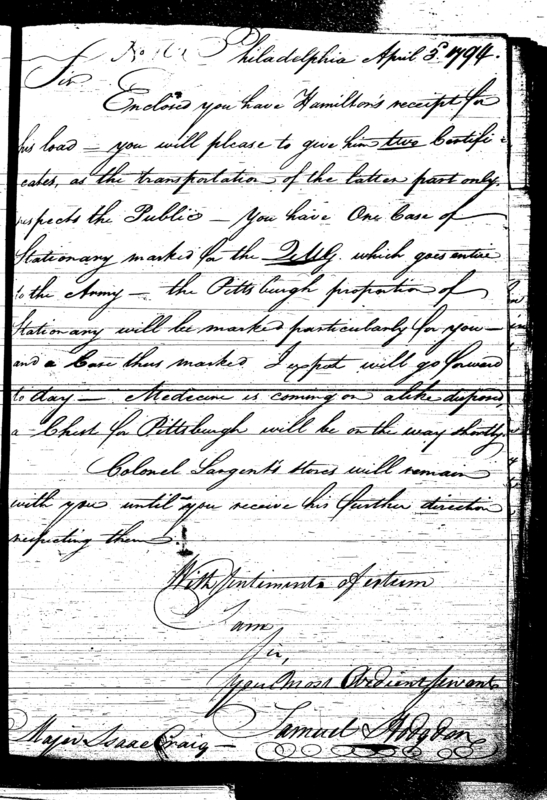 Philadelphia April 5th 1794.
Sir
Enclosed you have Hamilton's receipt for
his load — you will please to give him two Certifi-
cates, as the transportation of the latter part only,
respects the Public — You have One Case of
Stationary marked for the QMG. which goes entire
to the Army — the Pittsburgh proportion of
Stationary will be marked particularly for you —
and a Case thus marked I expect will go forward
to day — Medecine is coming on alike disposed,
a Chest for Pittsburgh will be on the way shortly.
Colonel Sargent's stores will remain
with you until you receive his further direction
respecting them.
With Sentiments of esteem
I am
Sir,
Your Most Obedient Servant
Samuel Hodgdon
Major Isaac Craig —